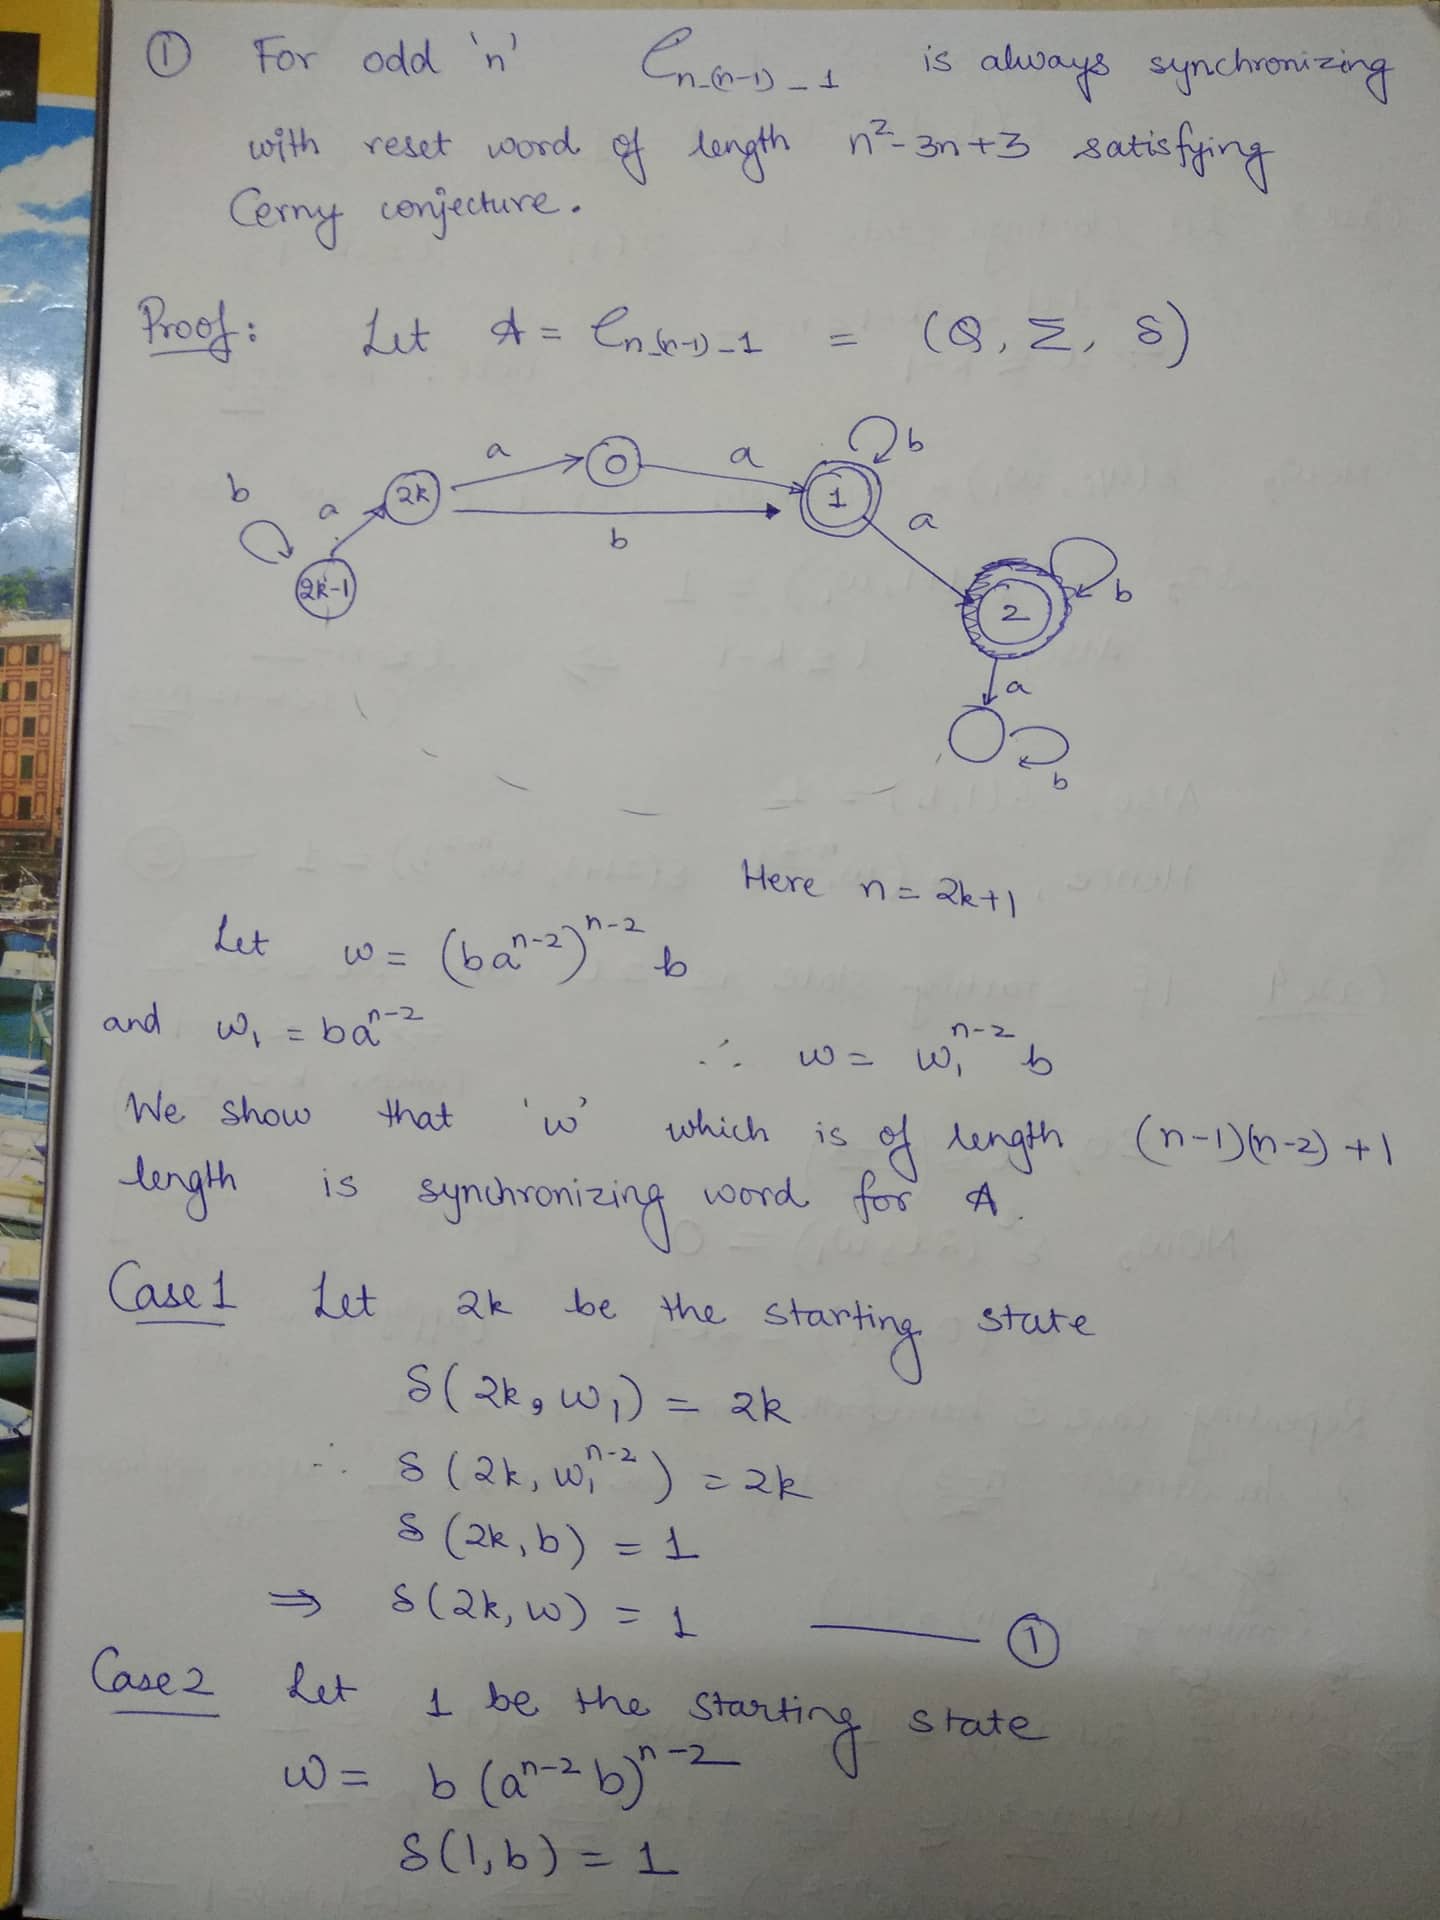 ① For odd 'n' C_{n-(n-1)-1} is always synchronizing
with reset word of length n²-3n+3 satisfying
Cerny conjecture.
Proof: Let A = C_{n-(n-1)-1} = (Q, Σ, δ)
b a 2k a 0 a 1 b
2k-1 b a
2 b
a
b
Here n = 2k+1
Let w = (ba^{n-2})^{n-2} b
and w₁ = ba^{n-2} ∴ w = w₁^{n-2} b
We show that 'w' which is of length (n-1)(n-2)+1
length is synchronizing word for A.
Case 1 Let 2k be the starting state
δ(2k, w₁) = 2k
∴ δ(2k, w₁^{n-2}) = 2k
δ(2k, b) = 1
⇒ δ(2k, w) = 1 —— ①
Case 2 Let 1 be the starting state
w = b(a^{n-2} b)^{n-2}
δ(1, b) = 1